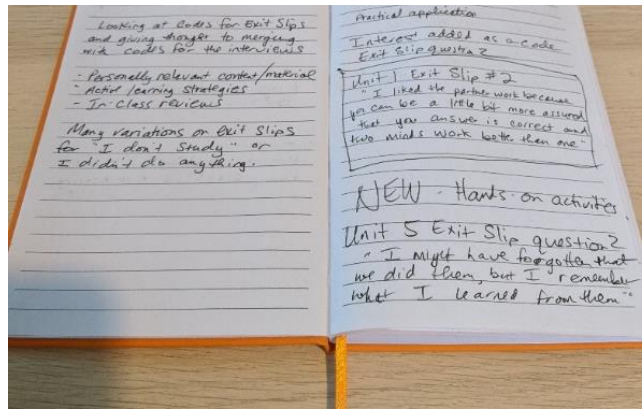 Looking at Codes for Exit Slips
and giving thought to merging
with codes for the interviews
- Personally relevant content/material
- Active learning strategies
- In-class reviews
Many variations on exit slips
for "I don't study" or
I didn't do anything.
Practical application
Interest added as a code
Exit Slip question 2
Unit 1 Exit Slip #2
"I liked the partner work because
you can be a little bit more assured
that your answer is correct and
two minds work better than one"
NEW - Hands-on activities
Unit 5 Exit Slip question 2
"I might have forgotten that
we did them, but I remember
what I learned from them"